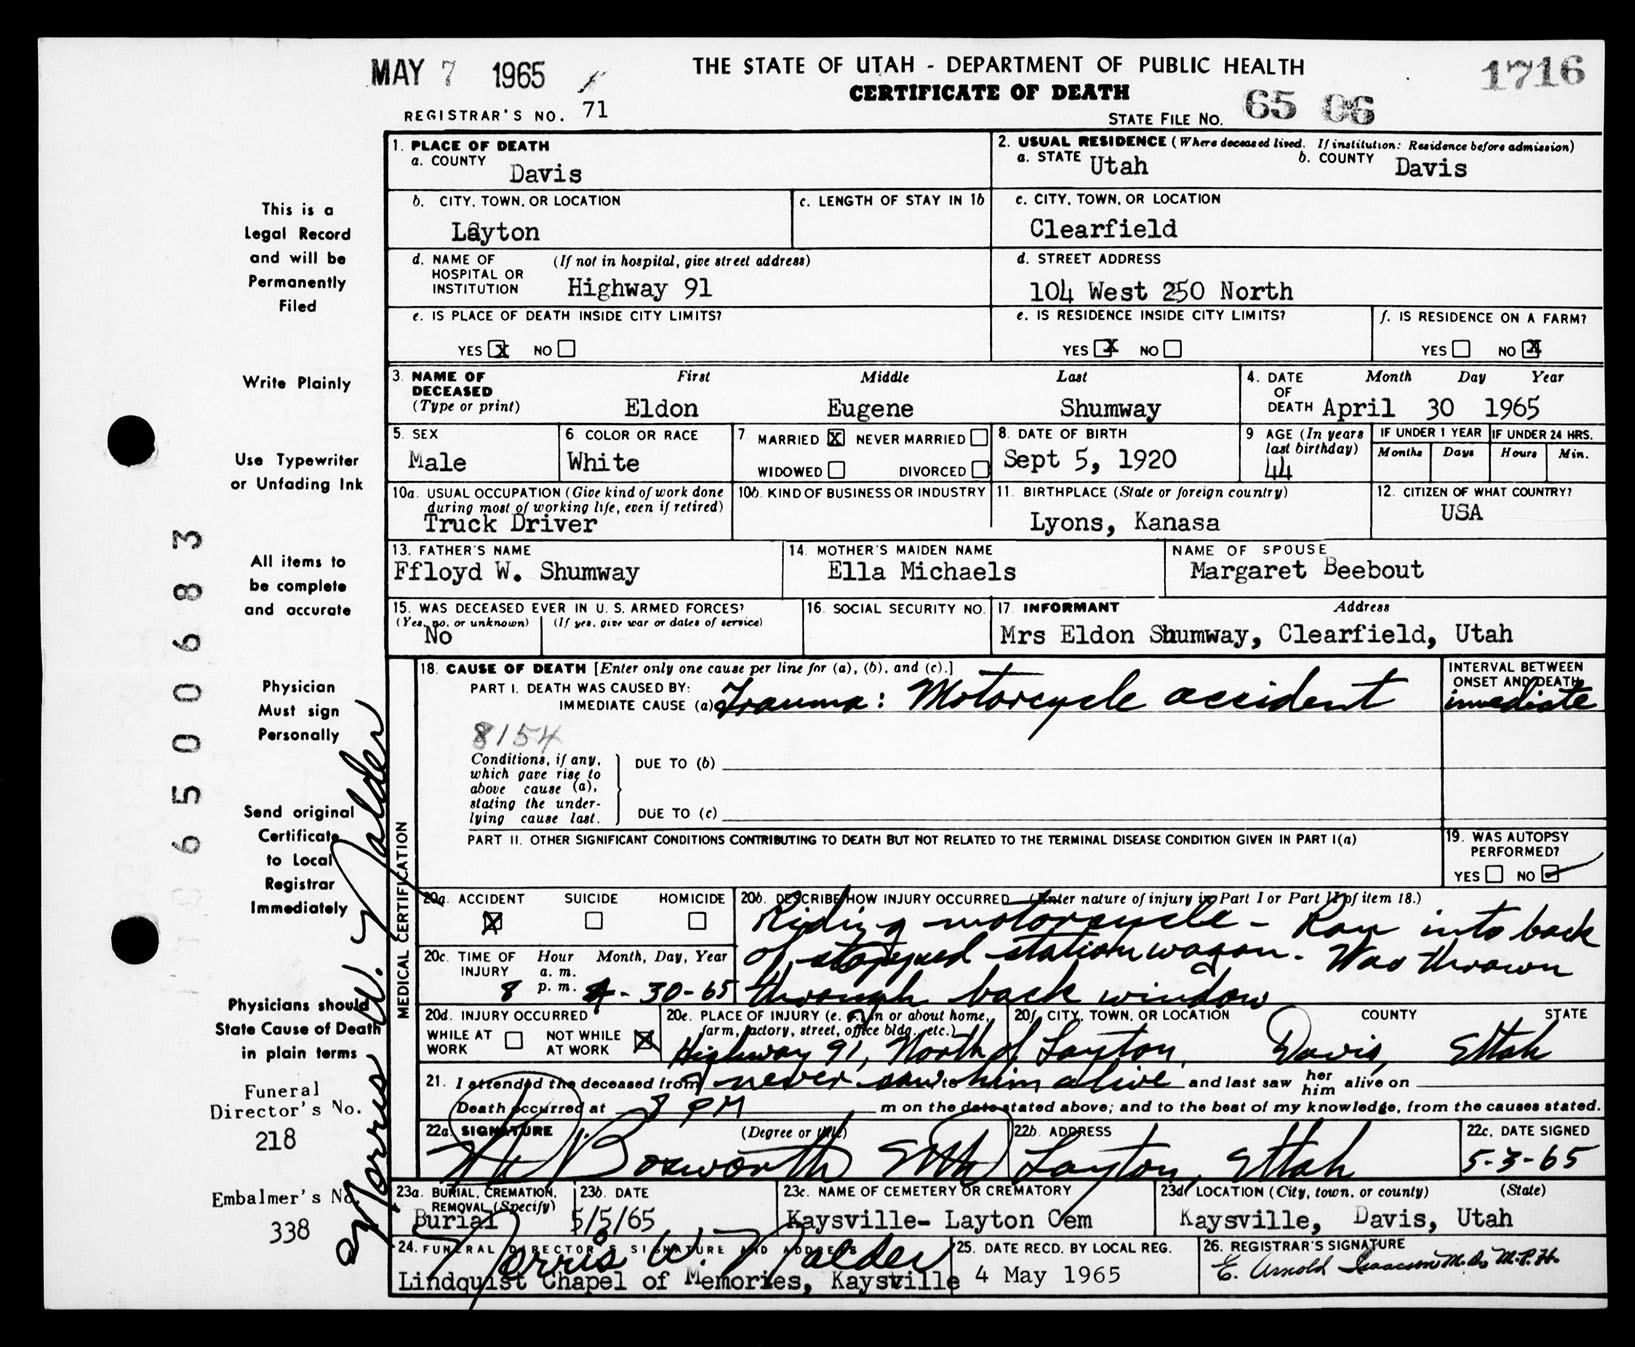 MAY 7 1965
THE STATE OF UTAH - DEPARTMENT OF PUBLIC HEALTH
1716
CERTIFICATE OF DEATH
REGISTRAR'S NO. 71
STATE FILE NO. 65 06
This is a
Legal Record
and will be
Permanently
Filed
Write Plainly
Use Typewriter
or Unfading Ink
All items to
be complete
and accurate
Physician
Must sign
Personally
Send original
Certificate
to Local
Registrar
Immediately
Physicians should
State Cause of Death
in plain terms
Funeral
Director's No.
218
Embalmer's No.
338
Norris W. Nalder
650 0683
1. PLACE OF DEATH
a. COUNTY Davis
2. USUAL RESIDENCE (Where deceased lived. If institution: Residence before admission)
a. STATE Utah b. COUNTY Davis
b. CITY, TOWN, OR LOCATION Layton
c. LENGTH OF STAY IN 1b
c. CITY, TOWN, OR LOCATION
Clearfield
d. NAME OF HOSPITAL OR INSTITUTION (If not in hospital, give street address)
Highway 91
d. STREET ADDRESS
104 West 250 North
e. IS PLACE OF DEATH INSIDE CITY LIMITS?
YES X NO
e. IS RESIDENCE INSIDE CITY LIMITS?
YES X NO
f. IS RESIDENCE ON A FARM?
YES NO X
3. NAME OF DECEASED (Type or print) First Middle Last
Eldon Eugene Shumway
4. DATE OF DEATH Month Day Year
April 30 1965
5. SEX
Male
6. COLOR OR RACE
White
7. MARRIED X NEVER MARRIED
WIDOWED DIVORCED
8. DATE OF BIRTH
Sept 5, 1920
9 AGE (In years last birthday)
44
IF UNDER 1 YEAR
Months Days
IF UNDER 24 HRS.
Hours Min.
10a. USUAL OCCUPATION (Give kind of work done during most of working life, even if retired)
Truck Driver
10b. KIND OF BUSINESS OR INDUSTRY
11. BIRTHPLACE (State or foreign country)
Lyons, Kanasa
12. CITIZEN OF WHAT COUNTRY?
USA
13. FATHER'S NAME
Ffloyd W. Shumway
14. MOTHER'S MAIDEN NAME
Ella Michaels
NAME OF SPOUSE
Margaret Beebout
15. WAS DECEASED EVER IN U.S. ARMED FORCES?
(Yes, no, or unknown) (If yes, give war or dates of service)
No
16. SOCIAL SECURITY NO.
17. INFORMANT Address
Mrs Eldon Shumway, Clearfield, Utah
MEDICAL CERTIFICATION
18. CAUSE OF DEATH [Enter only one cause per line for (a), (b), and (c).]
INTERVAL BETWEEN ONSET AND DEATH
PART I. DEATH WAS CAUSED BY:
IMMEDIATE CAUSE (a) Trauma: Motorcycle accident
immediate
8154
Conditions, if any, which gave rise to above cause (a), stating the under-lying cause last.
DUE TO (b)
DUE TO (c)
PART II. OTHER SIGNIFICANT CONDITIONS CONTRIBUTING TO DEATH BUT NOT RELATED TO THE TERMINAL DISEASE CONDITION GIVEN IN PART I(a)
19. WAS AUTOPSY PERFORMED?
YES NO
20a. ACCIDENT SUICIDE HOMICIDE
X
20b. DESCRIBE HOW INJURY OCCURRED (Enter nature of injury in Part I or Part II of item 18.)
Riding motorcycle - Ran into back
of stopped station wagon. Was thrown
through back window
20c. TIME OF INJURY Hour a.m. p.m. Month, Day, Year
8 4-30-65
20d. INJURY OCCURRED
WHILE AT WORK NOT WHILE AT WORK X
20e. PLACE OF INJURY (e. g., in or about home, farm, factory, street, office bldg., etc.)
20f. CITY, TOWN, OR LOCATION COUNTY STATE
Highway 91, North of Layton, Davis, Utah
21. I attended the deceased from never saw to him alive and last saw her him alive on
Death occurred at 8 PM m on the date stated above; and to the best of my knowledge, from the causes stated.
22a. SIGNATURE (Degree or title)
Bosworth MD
22b. ADDRESS
Layton, Utah
22c. DATE SIGNED
5-3-65
23a. BURIAL, CREMATION, REMOVAL (Specify)
Burial
23b. DATE
5/5/65
23c. NAME OF CEMETERY OR CREMATORY
Kaysville- Layton Cem
23d LOCATION (City, town, or county) (State)
Kaysville, Davis, Utah
24. FUNERAL DIRECTOR'S SIGNATURE AND ADDRESS
Norris W. Nalder
Lindquist Chapel of Memories, Kaysville
25. DATE RECD. BY LOCAL REG.
4 May 1965
26. REGISTRAR'S SIGNATURE
E. Arnold Isaacson M.D., M.P.H.